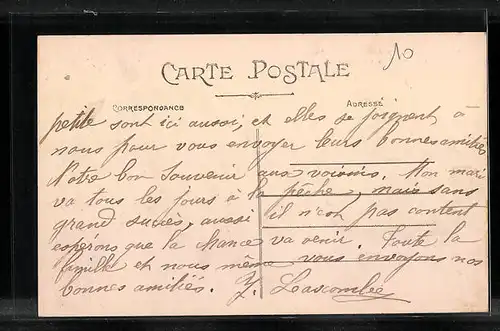 10
CARTE POSTALE
CORRESPONDANCE
ADRESSE
petite sont ici aussi, et elles se joignent à
nous pour vous envoyer leurs bonnes amitiés
Notre bon souvenir aux voisins. Mon mari
va tous les jours à la pêche, mais sans
grand succès, aussi il n'est pas content
espérons que la chance va venir. Toute la
famille et nous même vous envoyons nos
bonnes amitiés. Y. Lascombe